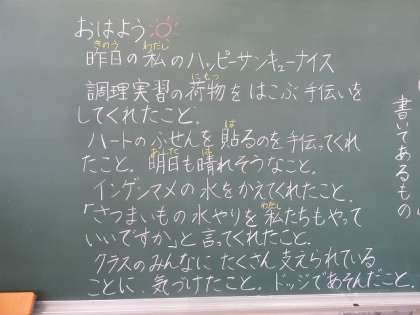 おはよう
昨日の私のハッピーサンキューナイス
調理実習の荷物をはこぶ手伝いを
してくれたこと。
ハートのふせんを貼るのを手伝ってくれ
たこと。明日も晴れそうなこと。
インゲンマメの水をかえてくれたこと。
「さつまいもの水やりを私たちもやって
いいですか」と言ってくれたこと。
クラスのみんなにたくさん支えられている
ことに、気づけたこと。ドッジであそんだこと。
書いてあるもの